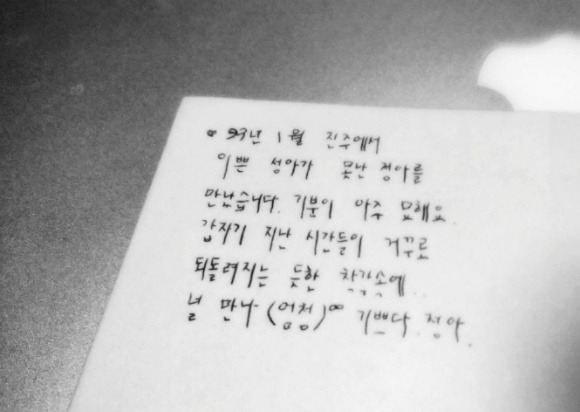 ∞ 93년 1월 진주에서
이쁜 성아가 못난 정아를
만났습니다. 기분이 아주 묘해요.
갑자기 지난 시간들이 거꾸로
되돌려지는 듯한 착각속에..
널 만나 (엄청)∞ 기쁘다. 정아.